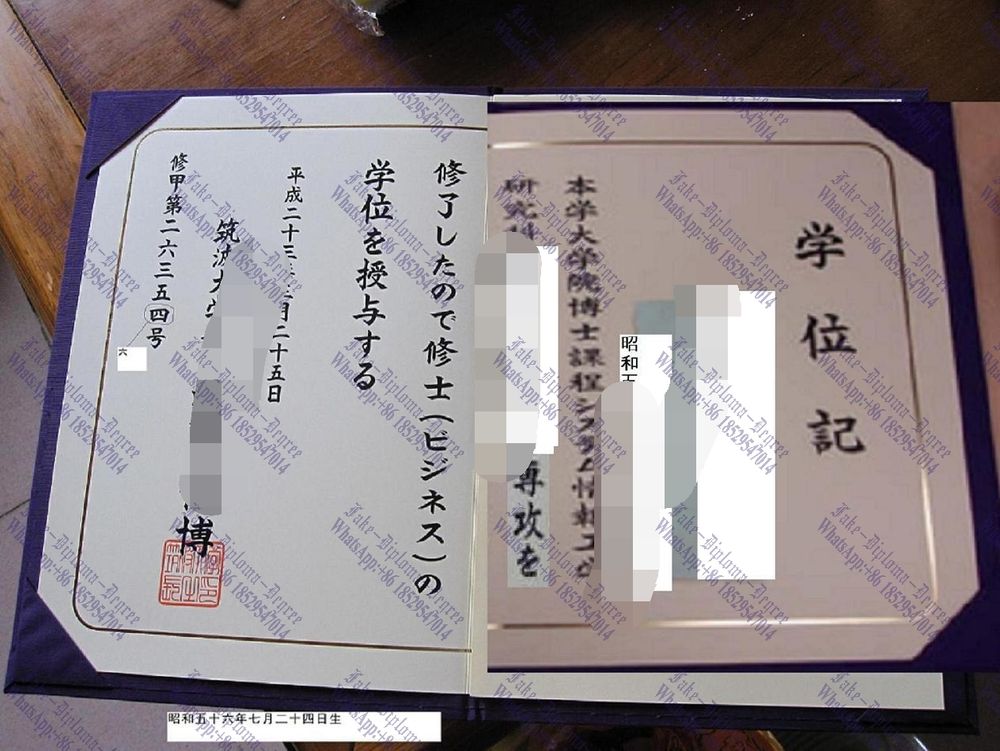 学位記
昭和五
本学大学院博士課程システム情報工
研究科
専攻を
修了したので修士(ビジネス)の
学位を授与する
平成二十三 月二十五日
筑波大
博
修甲第二六三五四号
六
昭和五十六年七月二十四日生
Fake-Diploma-Degree
WhatsApp:+86 18529547014